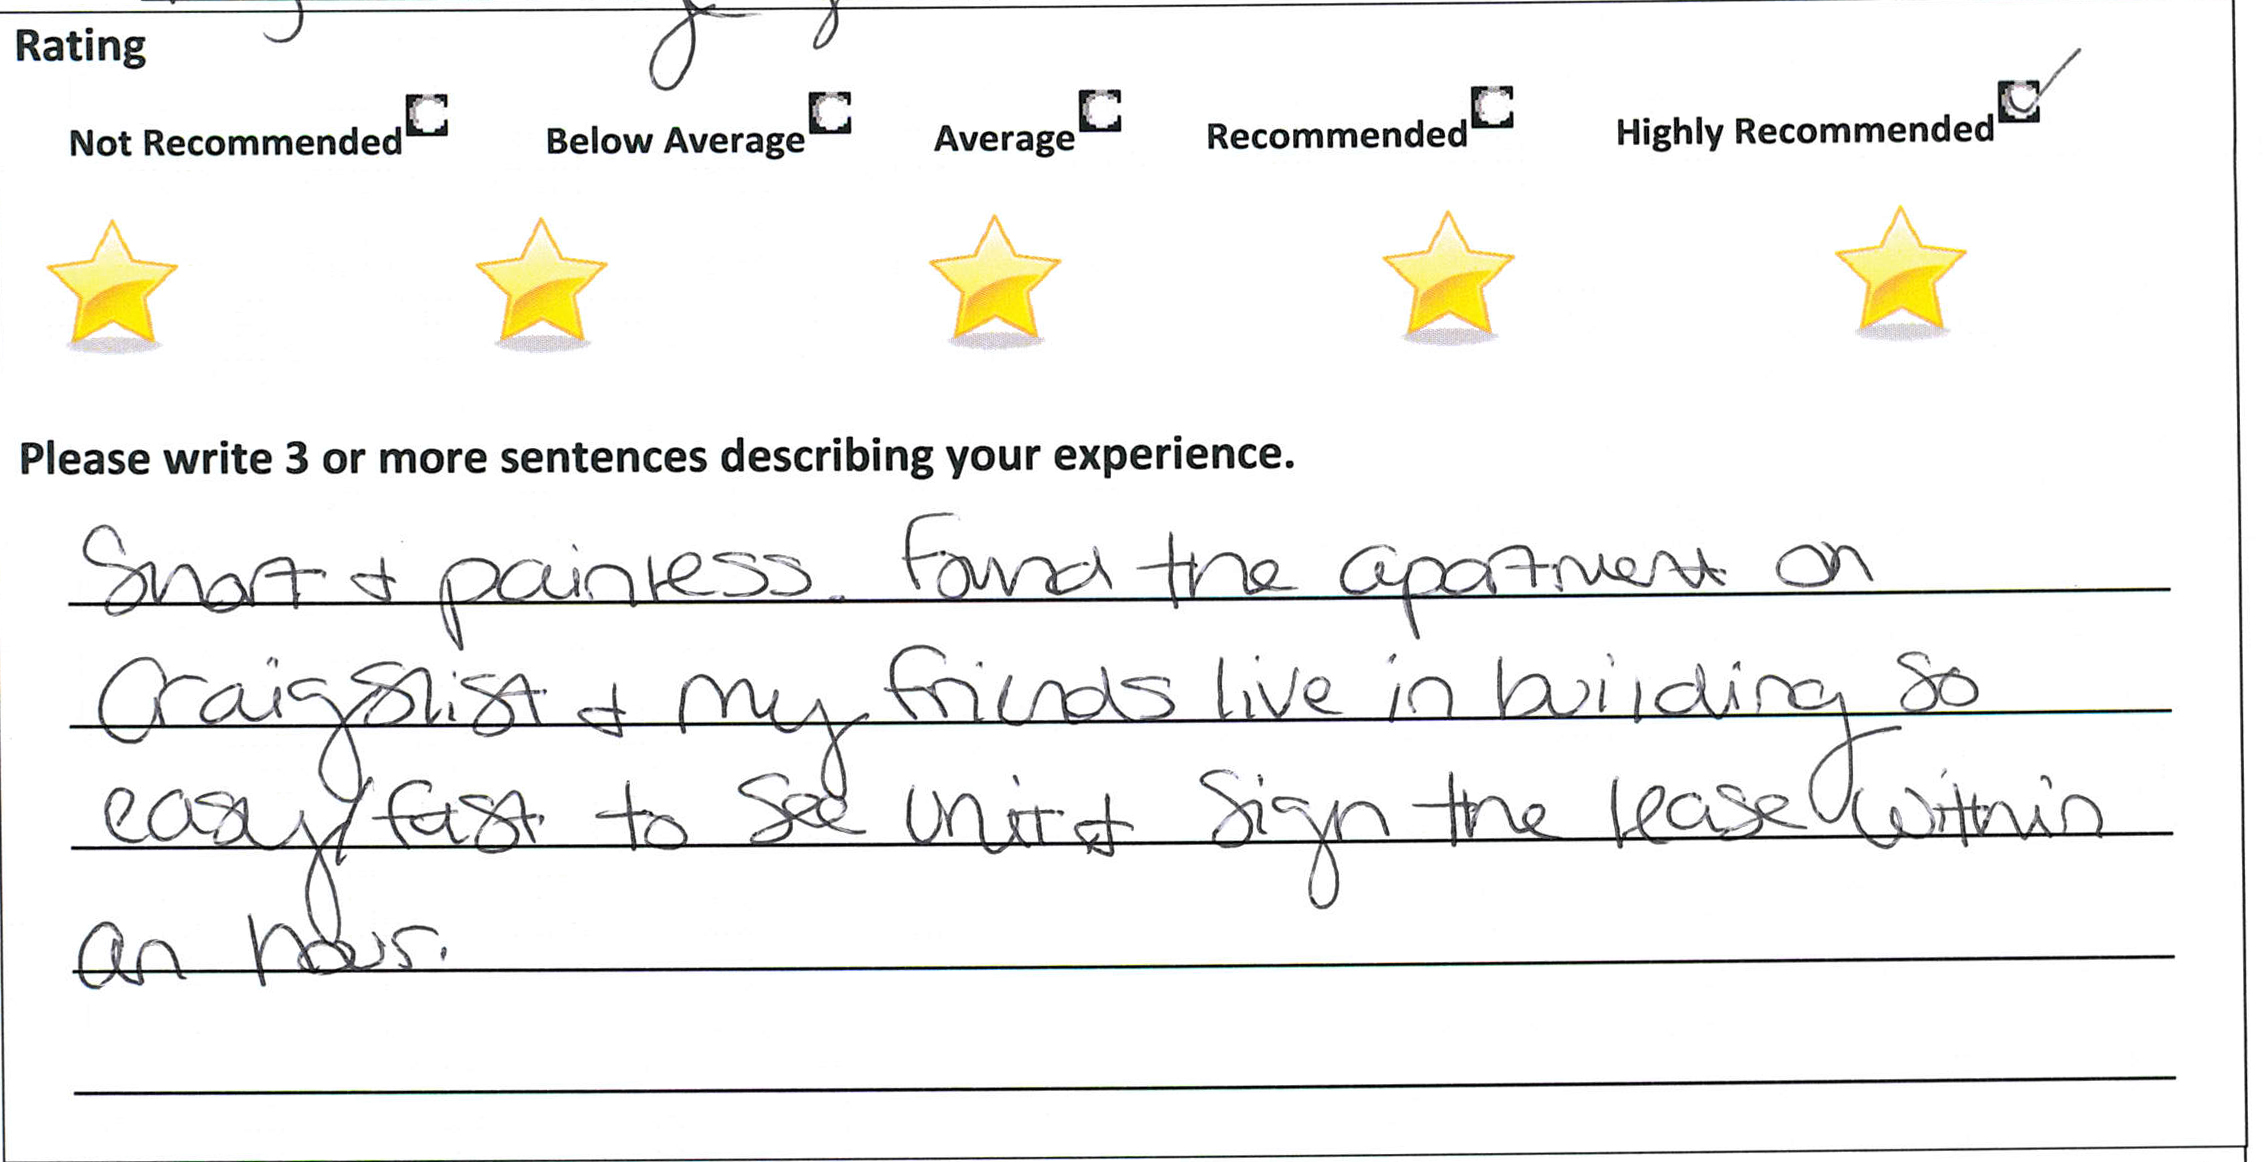 Rating
Not Recommended Below Average Average Recommended Highly Recommended
Please write 3 or more sentences describing your experience.
Short & painless. Found the apartment on
Craigslist & my friends live in building so
easy/fast to see unit & sign the lease within
an hour.